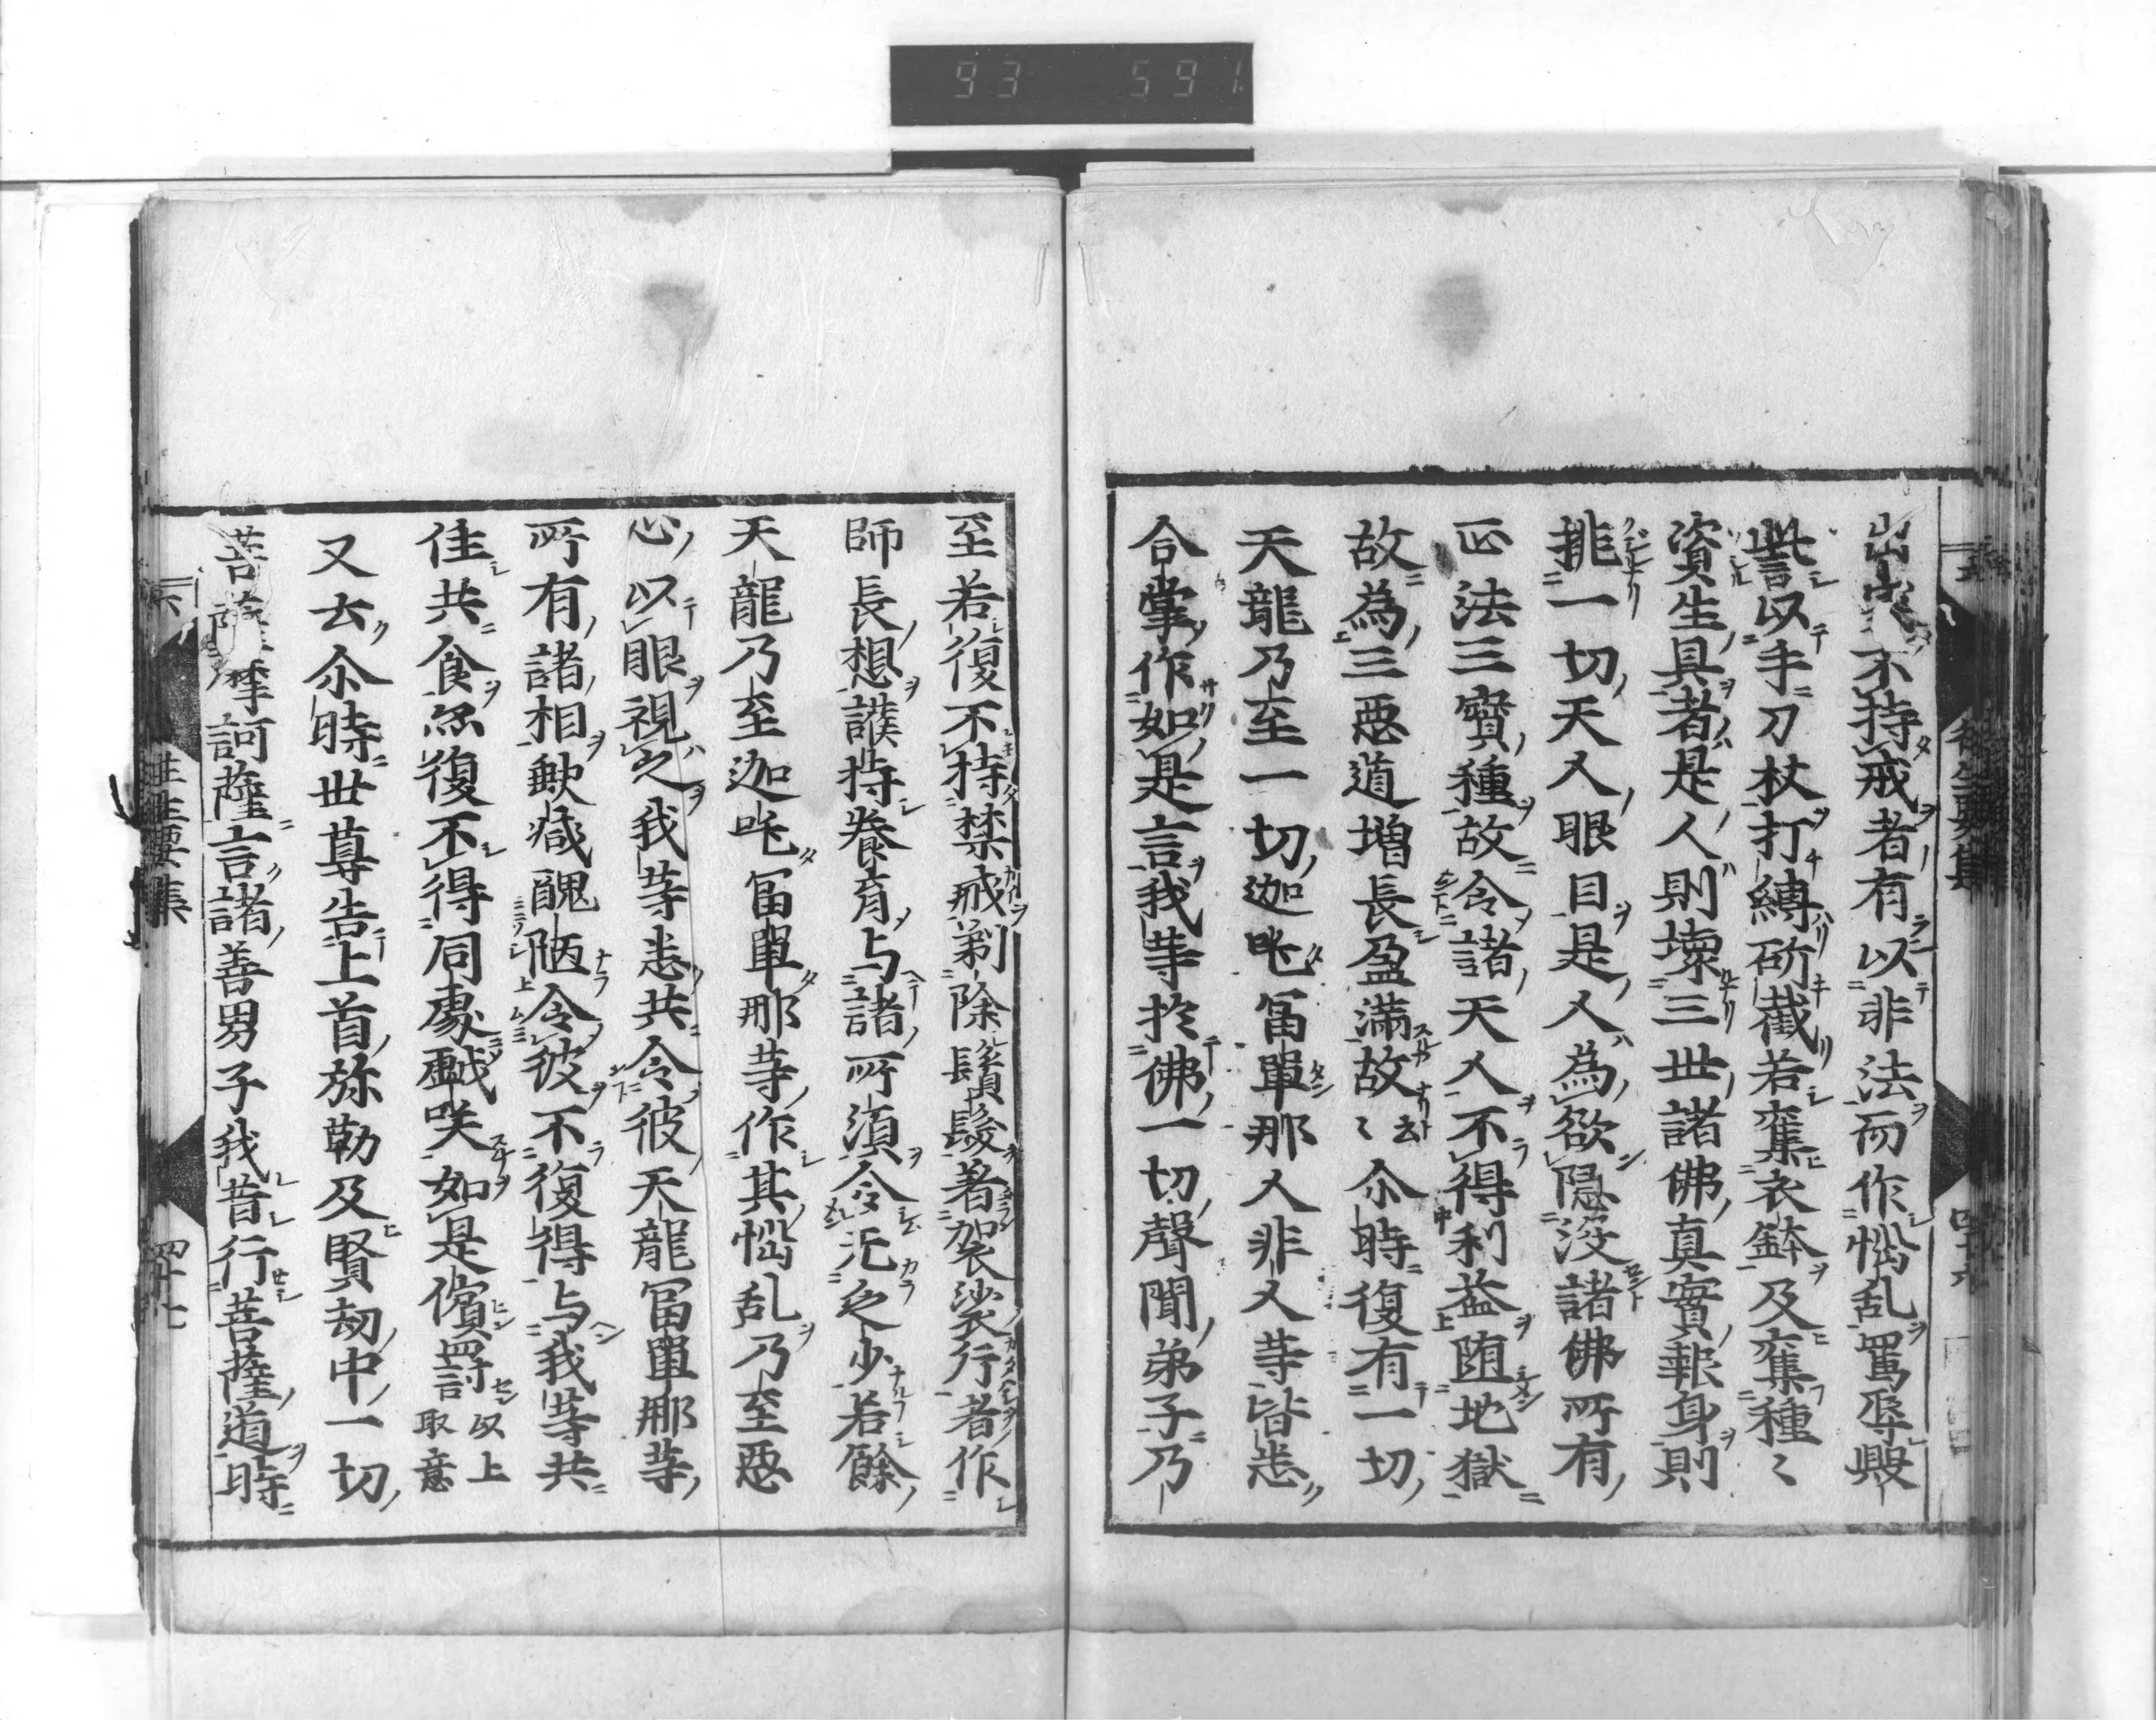 出家不持戒者有以非法而作惱乱罵辱毀
訾以手刀杖打縛斫截若奪衣鉢及奪種〻
資生具者是人則壞三世諸佛真實報身則
挑一切天人眼目是人為欲隠没諸佛所有
正法三寶種故令諸天人不得利益堕地獄
故為三惡道増長盈滿故〻尒時復有一切
天龍乃至一切迦吒冨單那人非人䓁皆悉
合掌作如是言我䓁於佛一切聲聞弟子乃
至若復不持禁戒剃除鬚髮著袈裟行者作
師長想護持養育与諸所須令无乏少若餘
天龍乃至迦吒冨單那䓁作其惱乱乃至惡
心以眼視之我䓁悉共令彼天龍冨單那䓁
所有諸相欠𤸷醜陋令彼不復得与我䓁共
住共食亦復不得同處戯咲如是儐罸以上取意
又云尒時世尊告上首弥勒及賢劫中一切
菩薩摩訶薩言諸善男子我昔行菩薩道時
往生要集
四十七